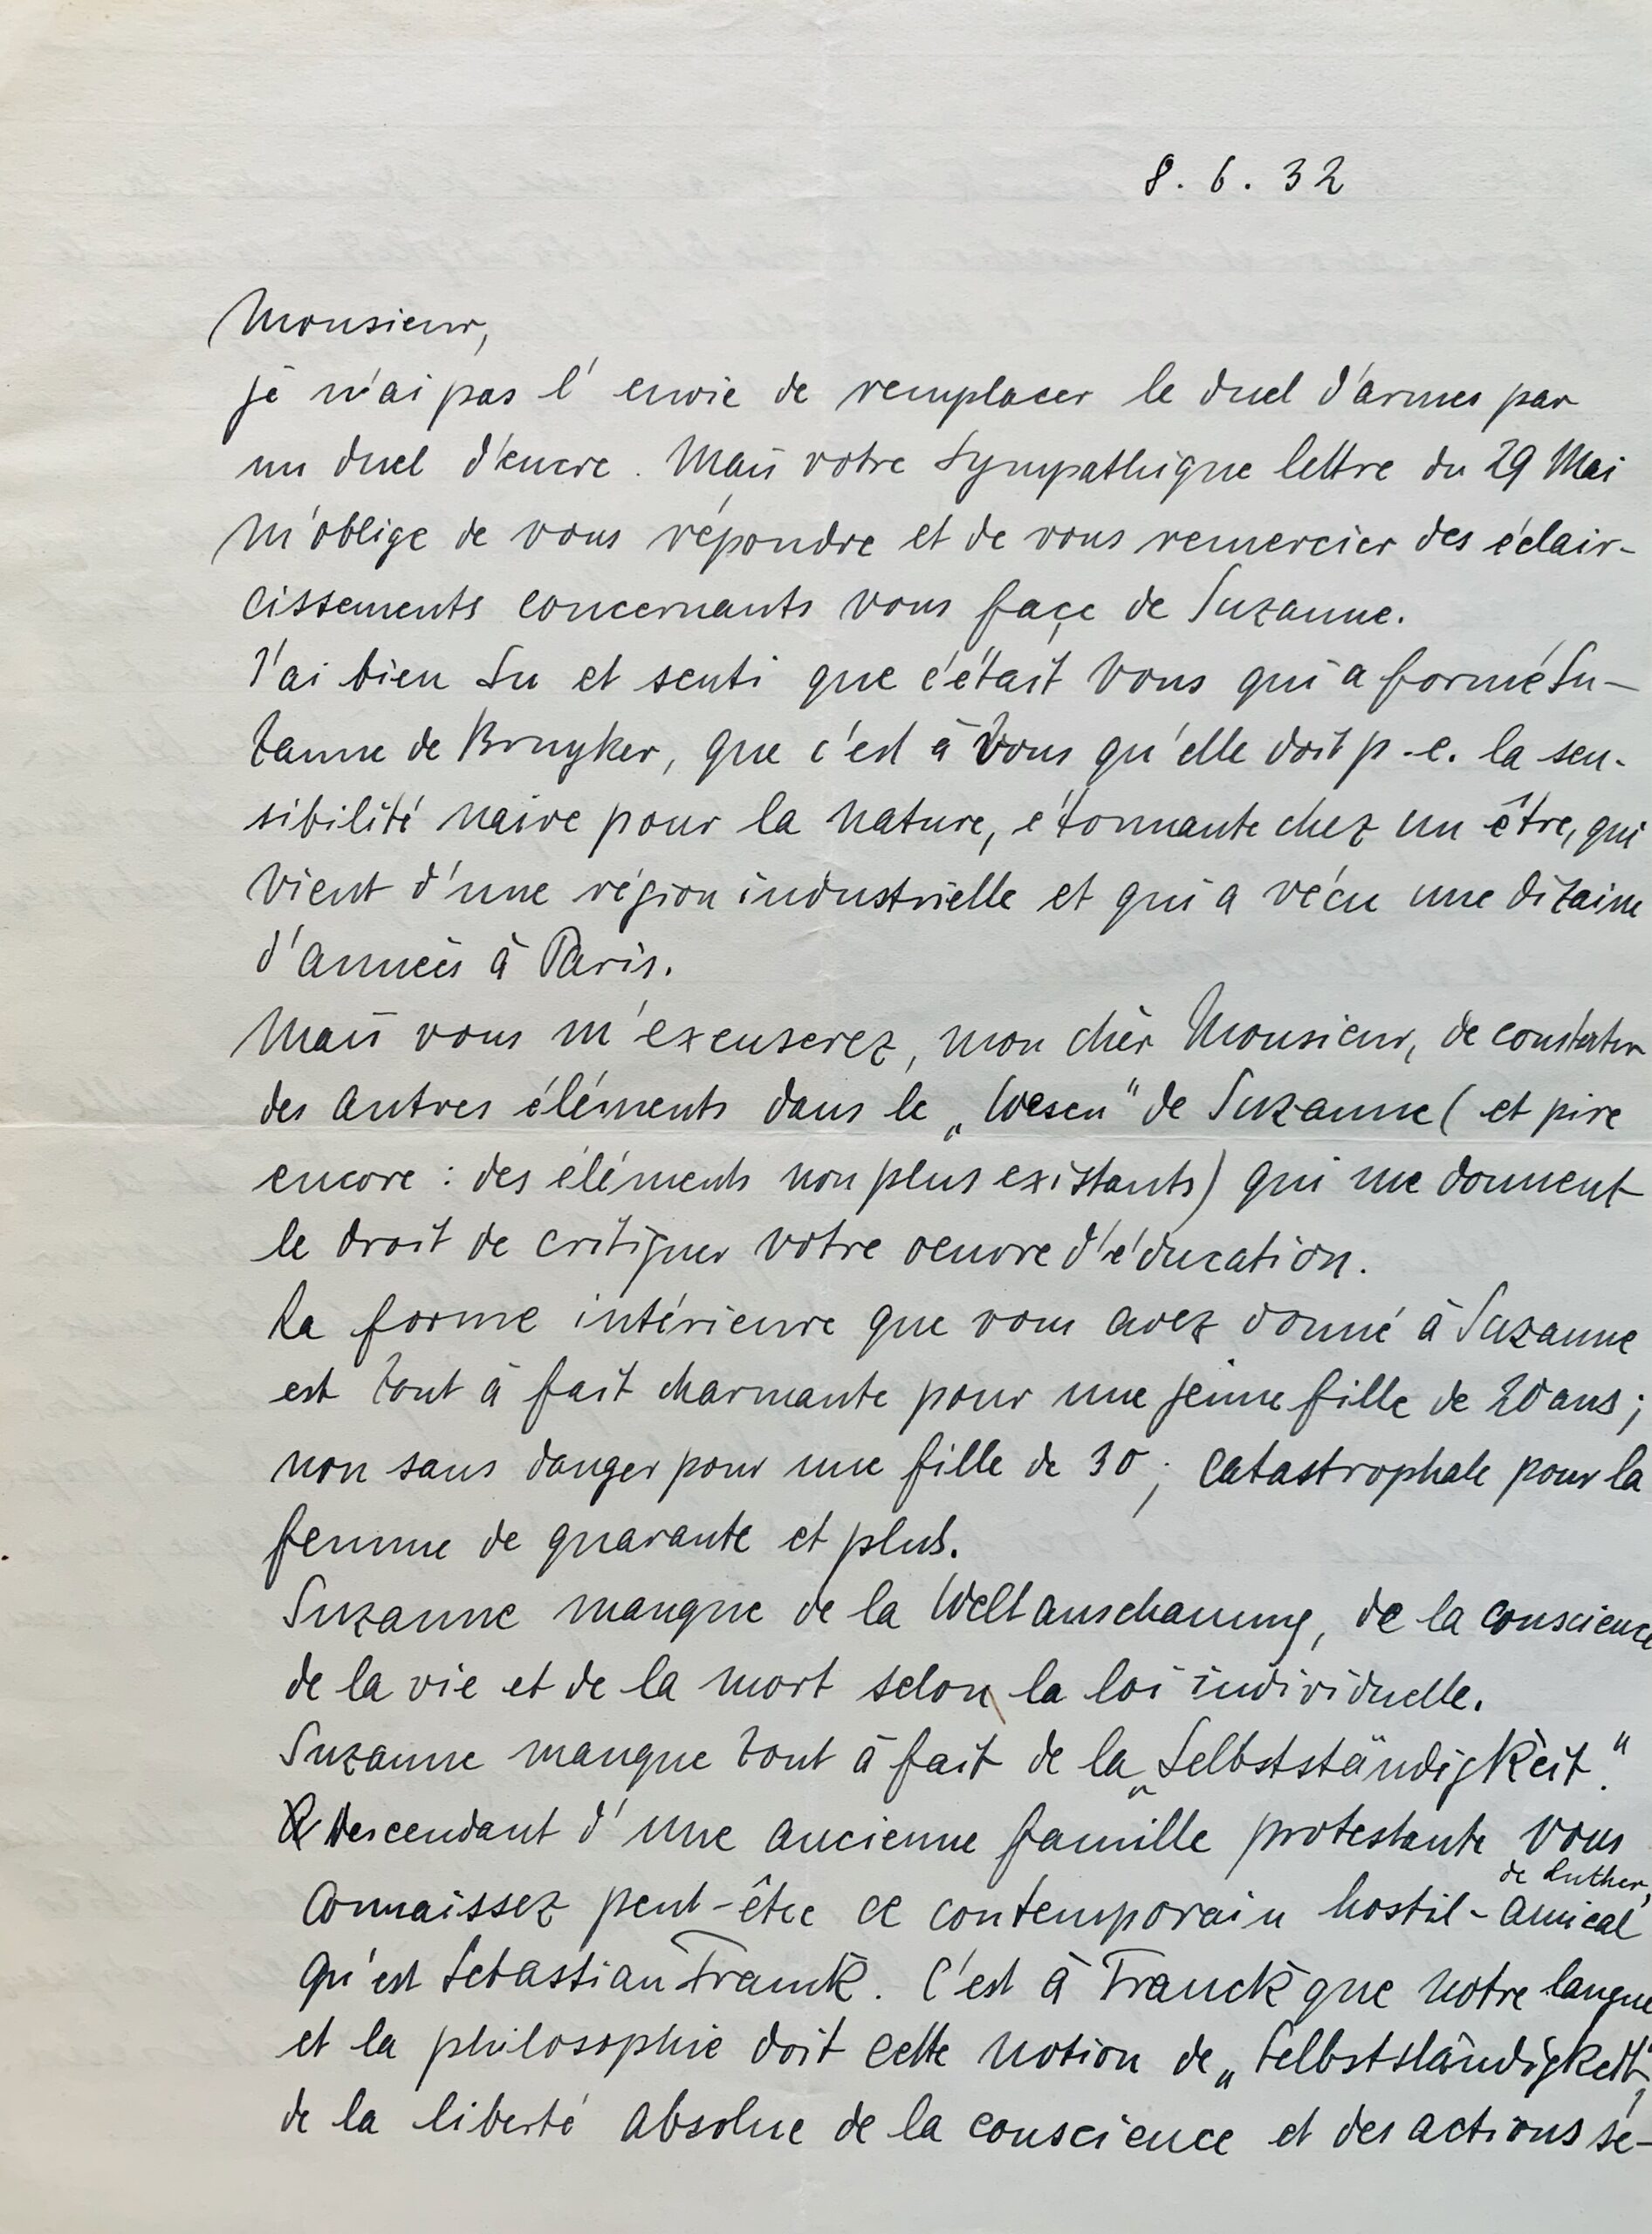 8. 6. 32
Monsieur,
je n'ai pas l'envie de remplacer le duel d'armes par
un duel d'encre. Mais votre sympathique lettre du 29 Mai
m'oblige de vous répondre et de vous remercier des éclair-
cissements concernants vous façe de Suzanne.
J'ai bien su et senti que c'était vous qui a formé Su-
zanne de Bruyker, que c'est à Vous qu'elle doit p.e. la sen-
sibilité naive pour la nature, étonnante chez un être, qui
vient d'une région industrielle et qui a vécu une dizaine
d'années à Paris.
Mais vous m'excuserez, mon cher Monsieur, de constater
des autres éléments dans le „Wesen" de Suzanne (et pire
encore : des éléments non plus existants) qui me donnent
le droit de critiquer votre oeuvre d'éducation.
La forme intérieure que vous avez donné à Suzanne
est tout à fait charmante pour une jeune fille de 20 ans ;
non sans danger pour une fille de 30 ; catastrophale pour la
femme de quarante et plus.
Suzanne manque de la Weltanschauung, de la conscience
de la vie et de la mort selon la loi individuelle.
Suzanne manque tout à fait de la „Selbstständigkeit".
Descendant d'une ancienne famille protestante vous
connaissez peut-être ce contemporain hostil-amical de Luther,
qu'est Sebastian Franck. C'est à Franck que notre langue
et la philosophie doit cette notion de „Selbstständigkeit",
de la liberté absolue de la conscience et des actions se-